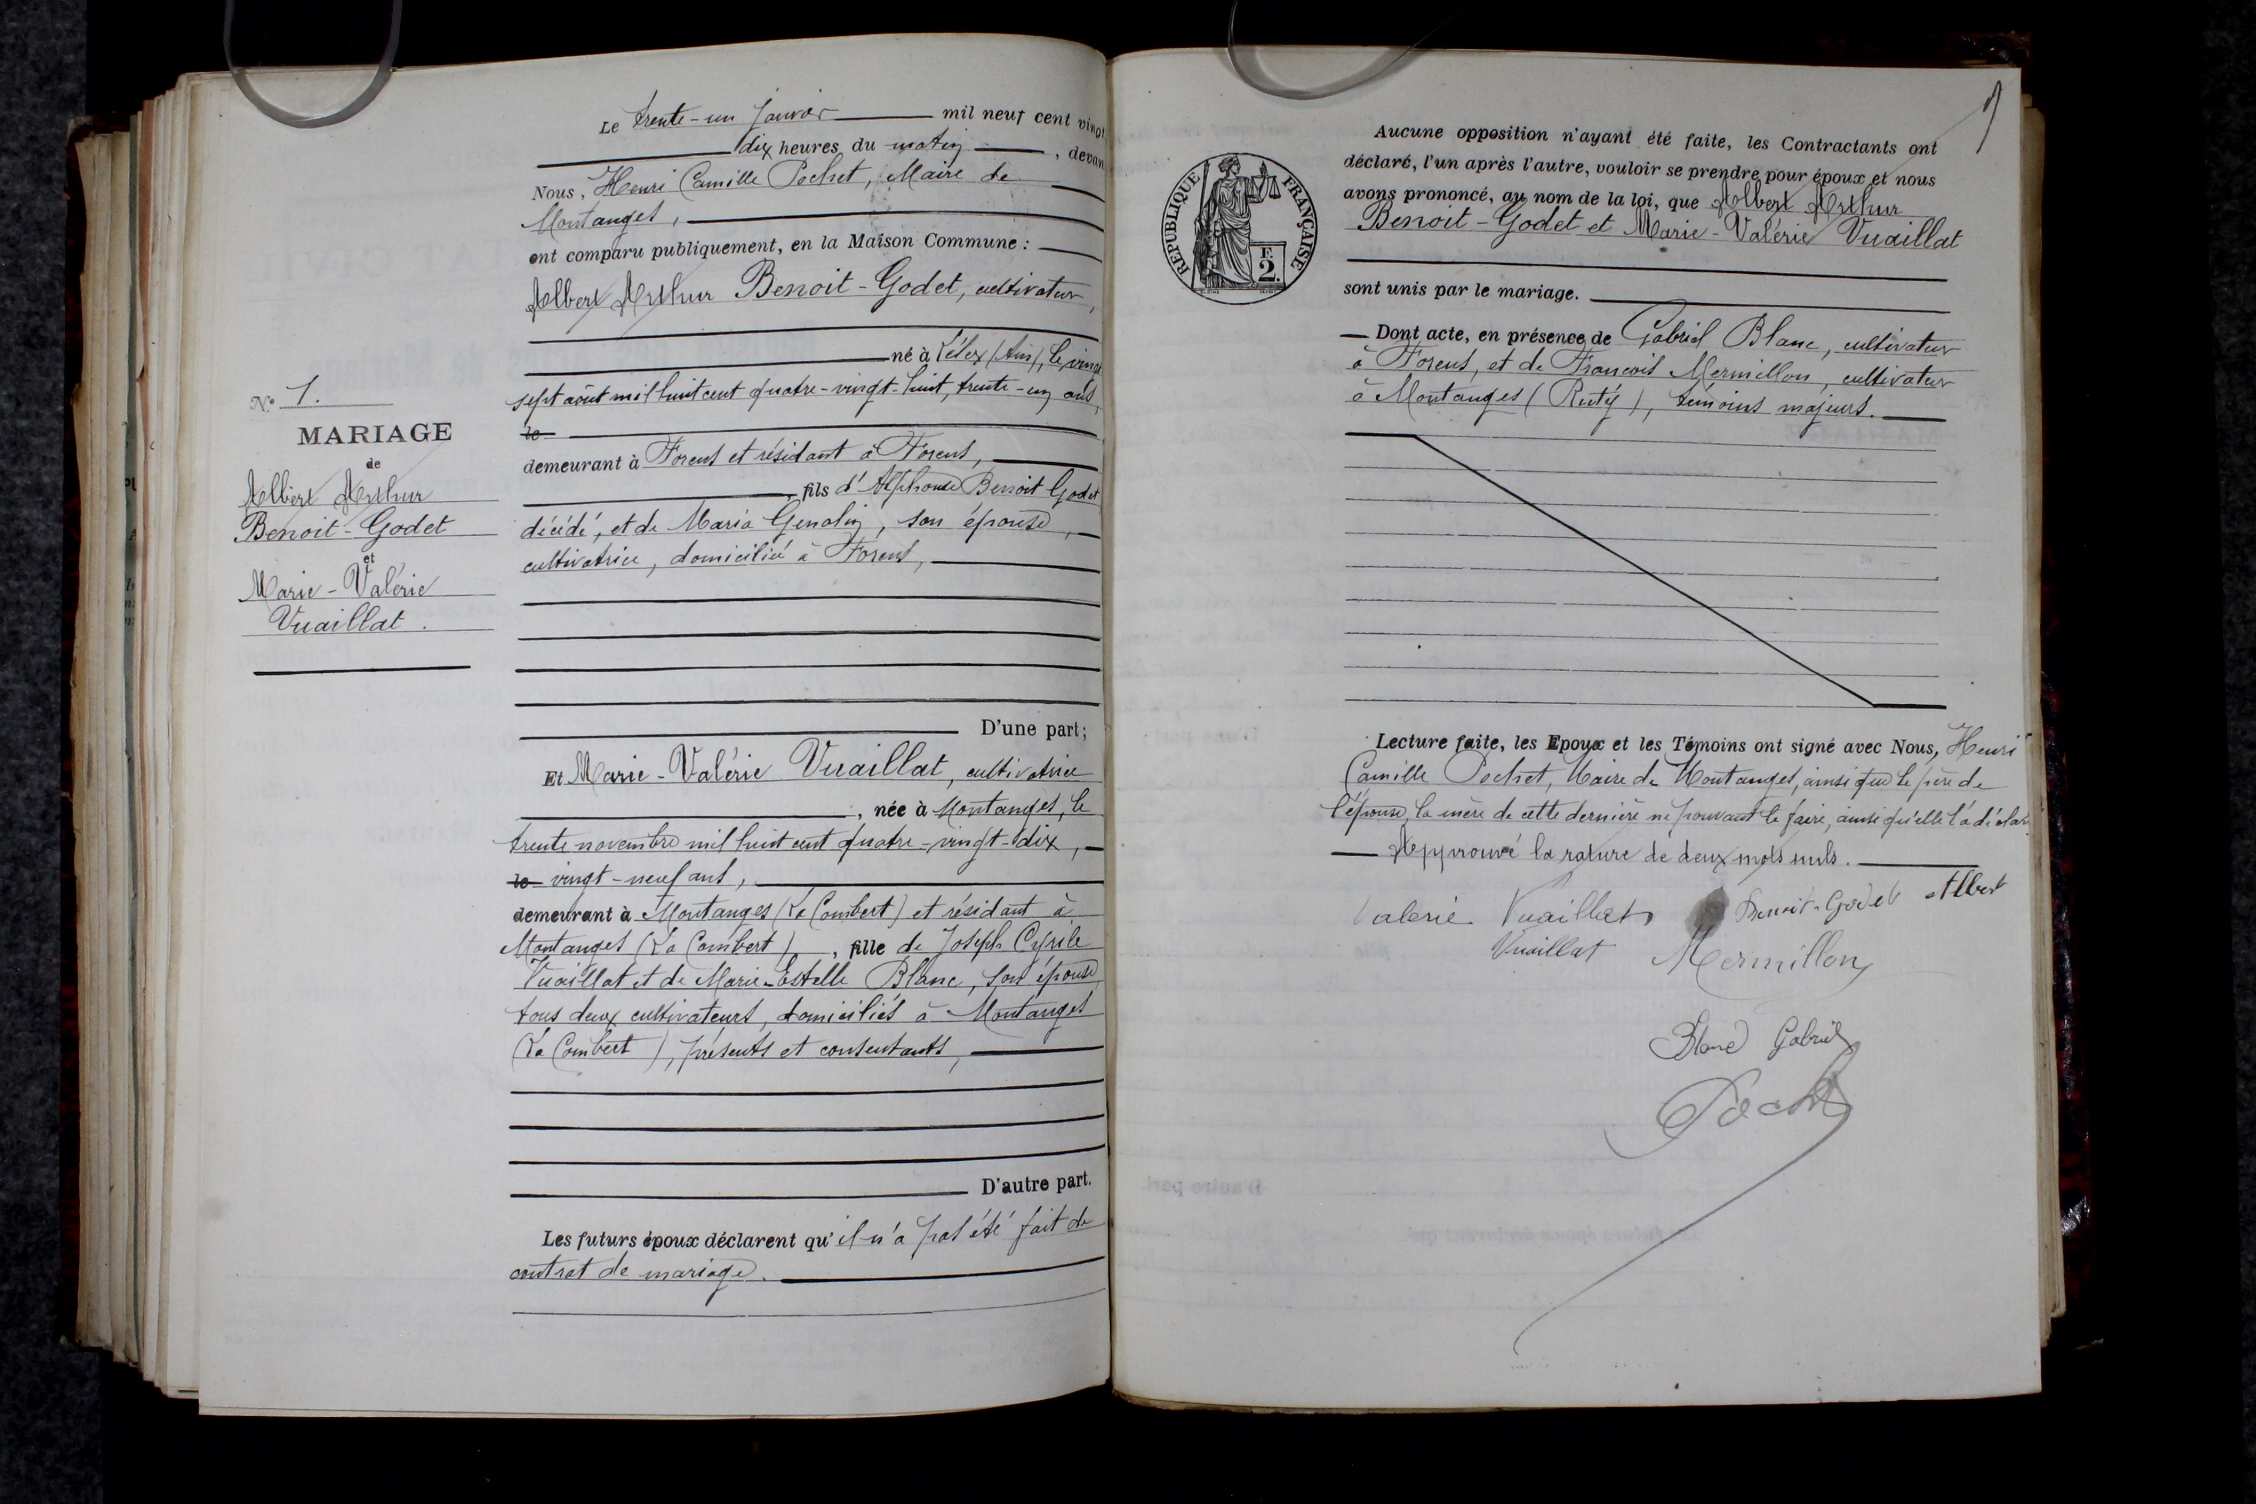 Le trente-un Janvier mil neuf cent vingt
dix heures du matin, devan
Nous, Henri Camille Pochet, Maire de
Montanges,
ont comparu publiquement, en la Maison Commune :
Albert Arthur Benoit-Godet, cultivateur,
né à Lélex (Ain), le vingt
sept août mil huit cent quatre-vingt-huit, trente-un ans,
le
demeurant à Forens et résidant à Forens,
fils d'Alphonse Benoit Godet
décédé, et de Maria Genolin, son épouse,
cultivatrice, domiciliée à Forens,
D'une part;
Et Marie-Valérie Vuaillat, cultivatrice
, née à Montanges, le
trente novembre mil huit cent quatre-vingt-dix,
le vingt-neuf ans,
demeurant à Montanges (La Combert) et résidant à
Montanges (La Combert), fille de Joseph Cyrile
Vuaillat et de Marie-Estelle Blanc, son épouse,
tous deux cultivateurs, domiciliés à Montanges
(La Combert), présents et consentants,
D'autre part.
Les futurs époux déclarent qu'il n'a pas été fait de
contrat de mariage.
N.º 1.
MARIAGE
de
Albert Arthur
Benoit-Godet
et
Marie-Valérie
Vuaillat.
RÉPUBLIQUE FRANÇAISE
F.
2
Aucune opposition n'ayant été faite, les Contractants ont
déclaré, l'un après l'autre, vouloir se prendre pour époux et nous
avons prononcé, au nom de la loi, que Albert Arthur
Benoit-Godet et Marie-Valérie Vuaillat
sont unis par le mariage.
Dont acte, en présence de Gabriel Blanc, cultivateur
à Forens, et de François Mermillon, cultivateur
à Montanges (Ruty), témoins majeurs.
Lecture faite, les Epoux et les Témoins ont signé avec Nous, Henri
Camille Pochet, Maire de Montanges, ainsi que le père de
l'épouse, la mère de cette dernière ne pouvant le faire, ainsi qu'elle l'a déclaré
Approuvé la rature de deux mots nuls.
Valérie Vuaillat Benoit-Godet Albert
Vuaillat Mermillon
Blanc Gabriel
Pochet